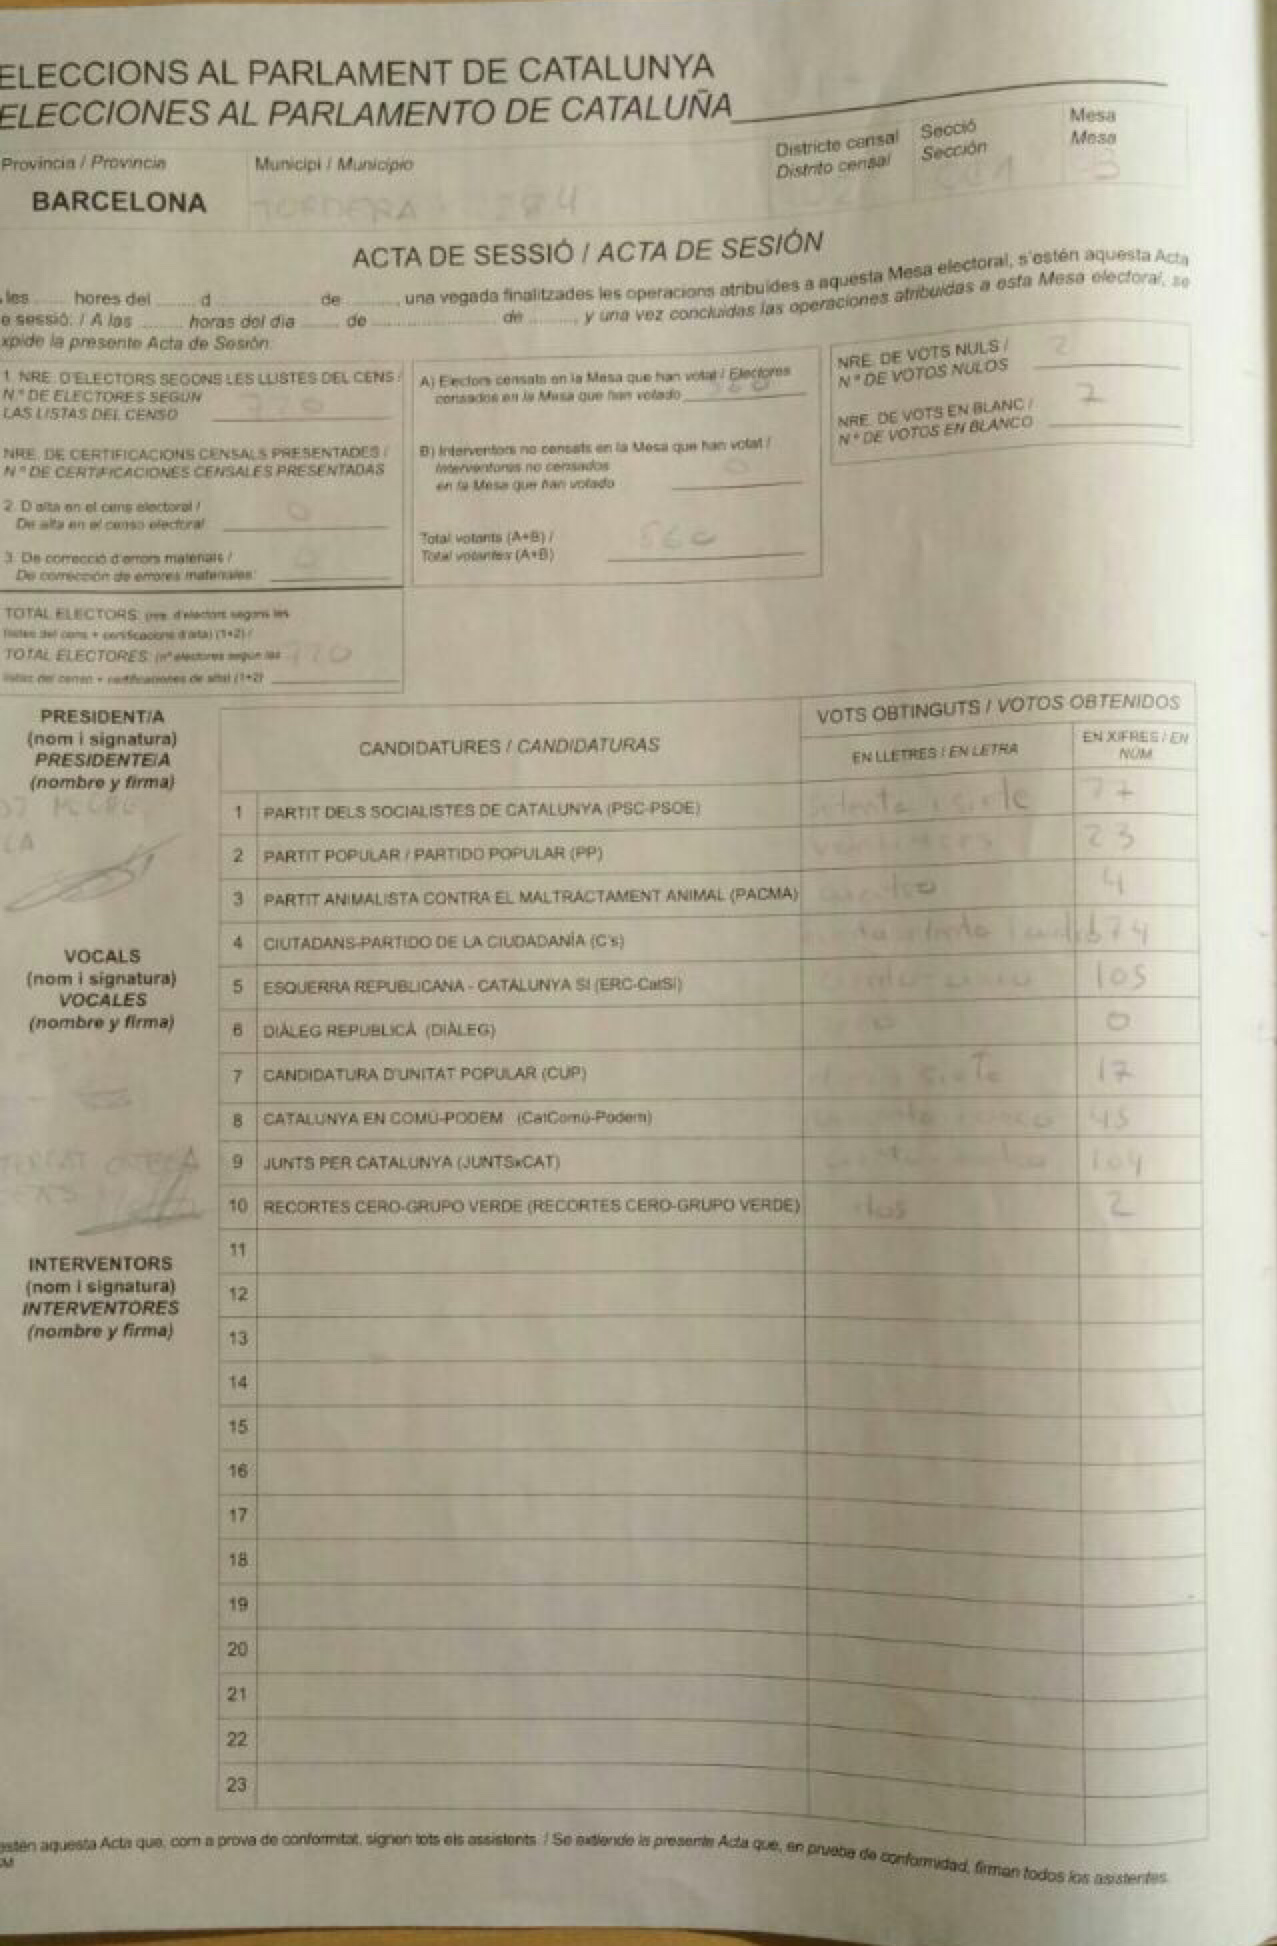 ELECCIONS AL PARLAMENT DE CATALUNYA
ELECCIONES AL PARLAMENTO DE CATALUÑA
Provincia / Provincia
Municipi / Municipio
Districte censal
Distrito censal
Secció
Sección
Mesa
Mesa
BARCELONA
TORDERA 284
001
B
ACTA DE SESSIÓ / ACTA DE SESIÓN
les ...... hores del ...... d ...... de ......, una vegada finalitzades les operacions atribuïdes a aquesta Mesa electoral, s'estén aquesta Acta
sessió. / A las ...... horas del día ...... de ...... de ...... y una vez concluidas las operaciones atribuidas a esta Mesa electoral, se
xpide la presente Acta de Sesión
1. NRE. D'ELECTORS SEGONS LES LLISTES DEL CENS /
N.º DE ELECTORES SEGÚN
LAS LISTAS DEL CENSO 770
NRE. DE CERTIFICACIONS CENSALS PRESENTADES /
N.º DE CERTIFICACIONES CENSALES PRESENTADAS
2. D'alta en el cens electoral /
De alta en el censo electoral 0
3. De correcció d'errors materials /
De corrección de errores materiales: 0
TOTAL ELECTORS: (nre. d'electors segons les
llistes del cens + certificacions d'alta) (1+2) /
TOTAL ELECTORES: (nº electores según las 770
listas del censo + certificaciones de alta) (1+2)
A) Electors censats en la Mesa que han votat / Electores
censados en la Mesa que han votado 560
B) Interventors no censats en la Mesa que han votat /
Interventores no censados
en la Mesa que han votado 0
Total votants (A+B) /
Total votantes (A+B) 560
NRE. DE VOTS NULS /
N.º DE VOTOS NULOS 2
NRE. DE VOTS EN BLANC /
N.º DE VOTOS EN BLANCO 2
PRESIDENT/A
(nom i signatura)
PRESIDENTE/A
(nombre y firma)
VOCALS
(nom i signatura)
VOCALES
(nombre y firma)
INTERVENTORS
(nom i signatura)
INTERVENTORES
(nombre y firma)
CANDIDATURES / CANDIDATURAS
VOTS OBTINGUTS / VOTOS OBTENIDOS
EN LLETRES / EN LETRA
EN XIFRES / EN
NÚM.
1 PARTIT DELS SOCIALISTES DE CATALUNYA (PSC-PSOE) setenta i siete 77
2 PARTIT POPULAR / PARTIDO POPULAR (PP) veintitres 23
3 PARTIT ANIMALISTA CONTRA EL MALTRACTAMENT ANIMAL (PACMA) cuatro 4
4 CIUTADANS-PARTIDO DE LA CIUDADANÍA (C's) 174
5 ESQUERRA REPUBLICANA - CATALUNYA SÍ (ERC-CatSí) 105
6 DIÀLEG REPUBLICÀ (DIÀLEG) 0
7 CANDIDATURA D'UNITAT POPULAR (CUP) siete 17
8 CATALUNYA EN COMÚ-PODEM (CatComú-Podem) 45
9 JUNTS PER CATALUNYA (JUNTSxCAT) 104
10 RECORTES CERO-GRUPO VERDE (RECORTES CERO-GRUPO VERDE) dos 2
11
12
13
14
15
16
17
18
19
20
21
22
23
estén aquesta Acta que, com a prova de conformitat, signen tots els assistents. / Se extiende la presente Acta que, en prueba de conformidad, firman todos los asistentes.